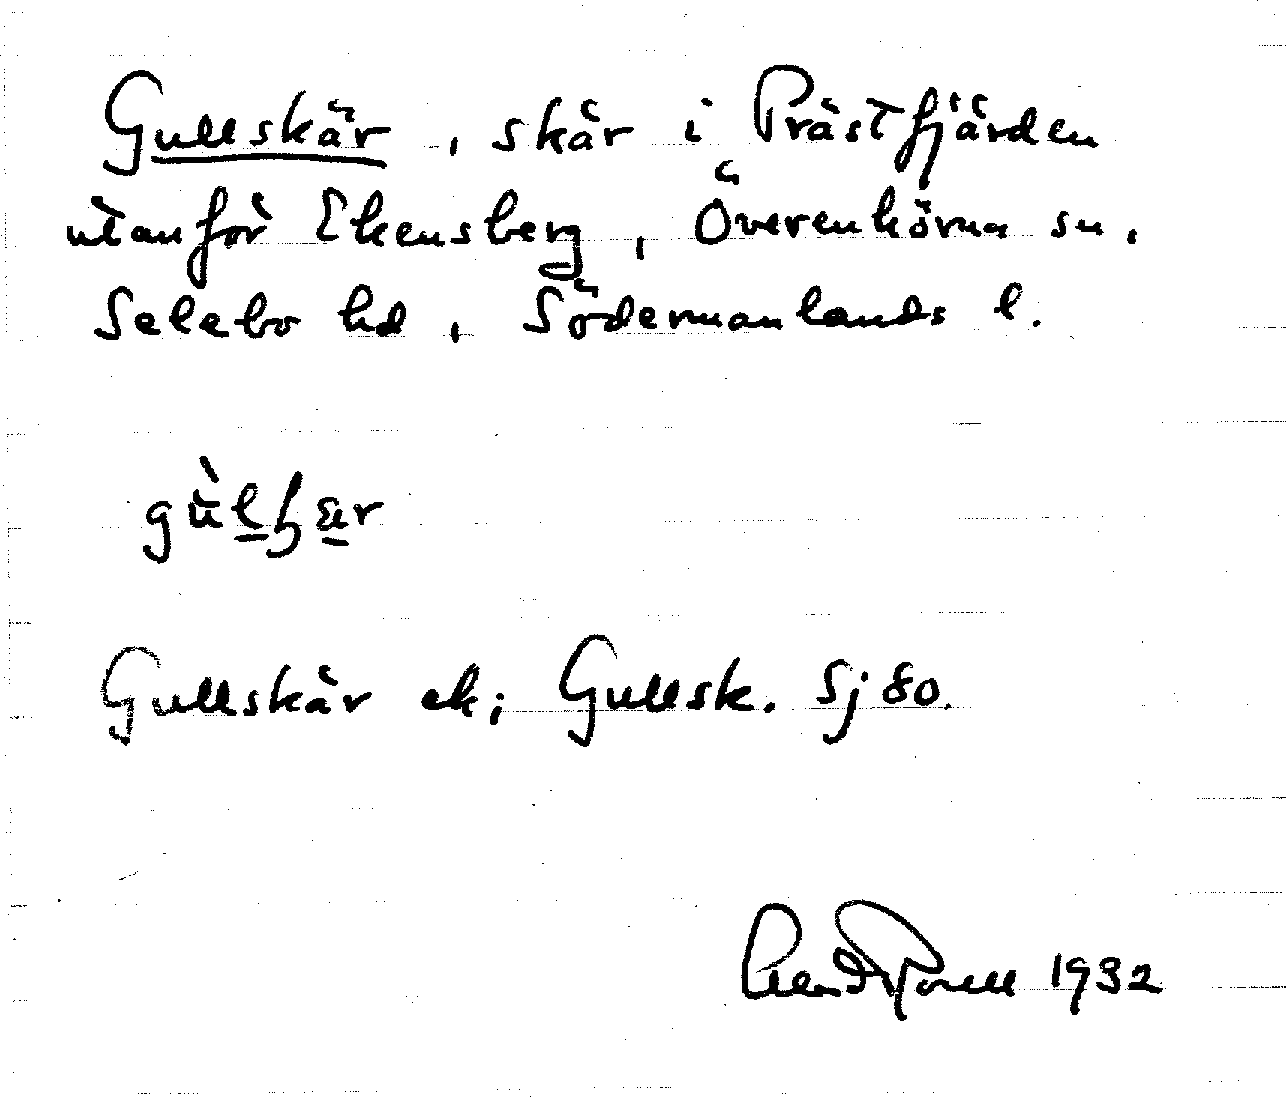 Gullskär, skär i Prästfjärden
utanför Ekensberg, Överenhörna sn,
Selebo hd, Södermanlands l.
Gullskär ek; Gullsk. Sj 80.
1932